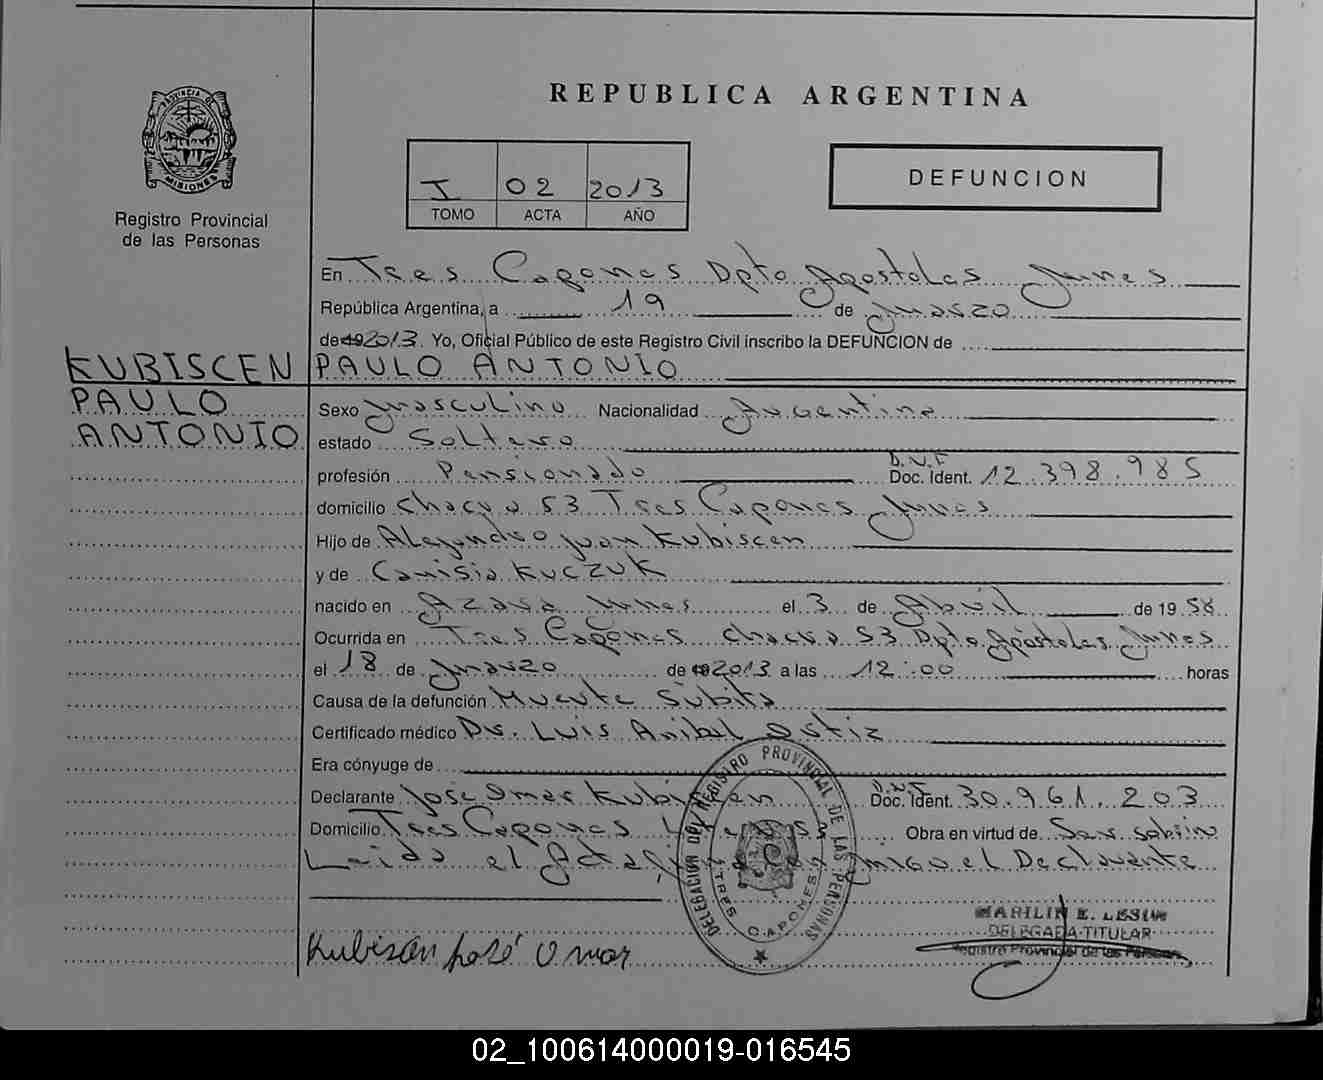 REPUBLICA ARGENTINA
PROVINCIA DE
MISIONES
Registro Provincial
de las Personas
I 02 2013
TOMO ACTA AÑO
DEFUNCION
En Tres Capones Dpto Apostoles Mnes
República Argentina, a 19 de Marzo
de 19 2013. Yo, Oficial Público de este Registro Civil inscribo la DEFUNCION de
KUBISCEN PAULO ANTONIO
PAULO
ANTONIO
Sexo Masculino Nacionalidad Argentina
estado Soltero
profesión Pensionado D.N.I Doc. Ident. 12.398.985
domicilio Chacra 53 Tres Capones Mnes
Hijo de Alejandro Juan Kubiscen
y de Camisia Kuczuk
nacido en Azara Mnes el 3 de Abril de 19 58
Ocurrida en Tres Capones chacra 53 Dpto Apóstoles Mnes
el 18 de Marzo de 19 2013 a las 12:00 horas
Causa de la defunción Muerte Subita
Certificado médico Dr. Luis Anibal Ortiz
Era cónyuge de
Declarante Jose Omar Kubiscen D.N.I Doc. Ident. 30.961.203
Domicilio Tres Capones Obra en virtud de Ser sobrino
Leida el Acta el Declarante
DELEGACION DEL REGISTRO PROVINCIAL DE LAS PERSONAS
TRES CAPONES
MARILIN E. LESIW
DELEGADA TITULAR
Registro Provincial de las Personas
Kubiscen José Omar
02_100614000019-016545